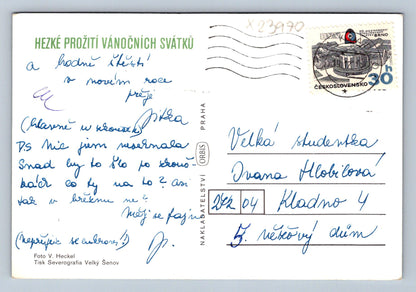 x23970
HEZKÉ PROŽITÍ VÁNOČNÍCH SVÁTKŮ
a hodně štěstí
v novém roce
přeje
Jitka
(hlavně ve zkoušk)
PS Nic jsem nesehnala
Snad by to šlo po
co ty na to? asi
tak v březnu ne?
Měj se fajn
Jr.
Foto V. Heckel
Tisk Severografia Velký Šenov
NAKLADATELSTVÍ ORBIS PRAHA
BRNO
ČESKOSLOVENSKO
30 h
Velká studentka
Ivana Hlobilová
272 04 Kladno 4
5. věžový dům